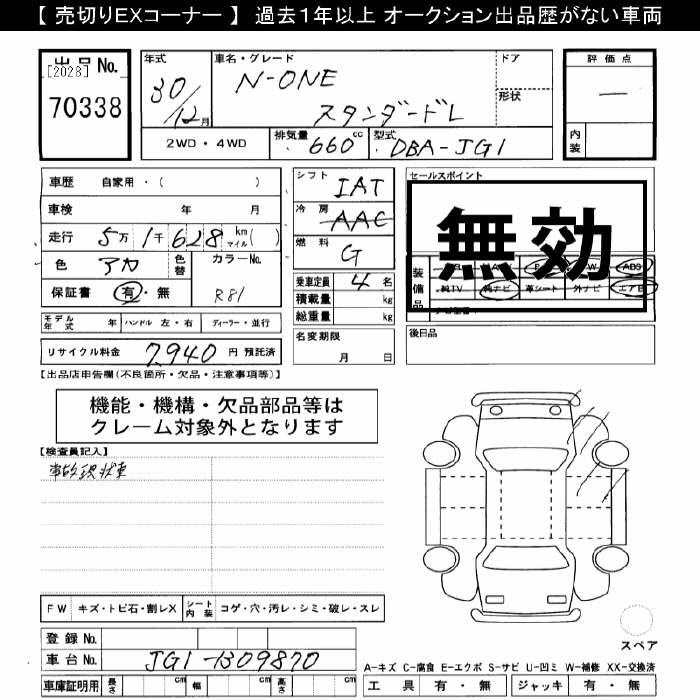 【 売切りEXコーナー 】 過去１年以上 オークション出品歴がない車両
出品 No.
[2028]
70338
年式 30/12月
車名・グレード N-ONE スタンダードL
ドア
形状
評価点 —
内装
2WD・4WD
排気量 660cc
型式 DBA-JG1
車歴 自家用・( )
車検 年 月
走行 5万1千628 km マイル( )
色 アカ
色替
カラーNo. R81
保証書 有・無
シフト IAT
冷房 AAC
燃料 G
乗車定員 4名
積載量 kg
総重量 kg
セールスポイント
無効
装備品
ABS
純TV 純ナビ 革シート 外ナビ エアB
モデル年式 年 ハンドル 左・右 ディーラー・並行
名変期限 月 日
後日品
リサイクル料金 7,940 円 預託済
【出品店申告欄(不良箇所・欠品・注意事項等)】
機能・機構・欠品部品等は
クレーム対象外となります
【検査員記入】
事故現状車
FW キズ・トビ石・割レX シート内装 コゲ・穴・汚レ・シミ・破レ・スレ
登録 No.
車台 No. JG1-1309870
スペア
A-キズ C-腐食 E-エクボ S-サビ U-凹ミ W-補修 XX-交換済
車庫証明用 長さ cm 幅 cm 高さ cm
工具 有・無 ジャッキ 有・無